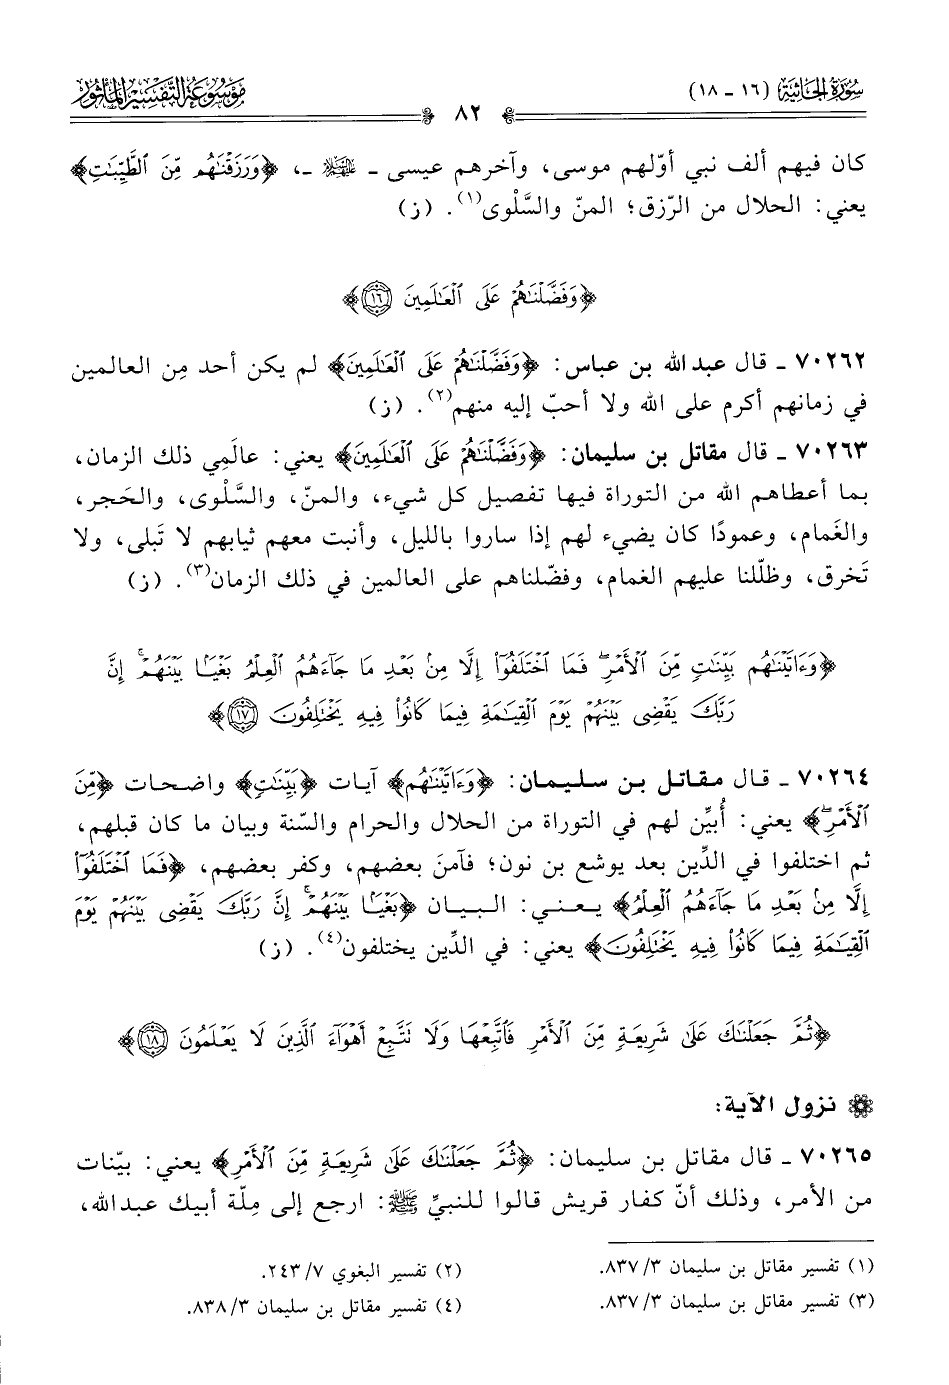 سُورَةُ الجَاثِيَة (١٦ - ١٨)
٨٢
مَوْسُوعَةُ التَّفْسِيرِ المَأْثُورِ
كان فيهم ألف نبي أوّلهم موسى، وآخرهم عيسى ـ عليه السلام ـ، ﴿وَرَزَقْنَٰهُم مِّنَ ٱلطَّيِّبَٰتِ﴾
يعني: الحلال من الرّزق؛ المنّ والسَّلْوى(١). (ز)
﴿وَفَضَّلْنَٰهُمْ عَلَى ٱلْعَٰلَمِينَ ١٦﴾
٧٠٢٦٢ ـ قال عبد الله بن عباس: ﴿وَفَضَّلْنَٰهُمْ عَلَى ٱلْعَٰلَمِينَ﴾ لم يكن أحد مِن العالمين
في زمانهم أكرم على الله ولا أحبّ إليه منهم(٢). (ز)
٧٠٢٦٣ ـ قال مقاتل بن سليمان: ﴿وَفَضَّلْنَٰهُمْ عَلَى ٱلْعَٰلَمِينَ﴾ يعني: عالَمِي ذلك الزمان،
بما أعطاهم الله من التوراة فيها تفصيل كل شيء، والمنّ، والسَّلْوى، والحَجر،
والغَمام، وعمودًا كان يضيء لهم إذا ساروا بالليل، وأنبت معهم ثيابهم لا تَبلى، ولا
تَخرق، وظلّلنا عليهم الغمام، وفضّلناهم على العالمين في ذلك الزمان(٣). (ز)
﴿وَءَاتَيْنَٰهُم بَيِّنَٰتٍ مِّنَ ٱلْأَمْرِ ۖ فَمَا ٱخْتَلَفُوٓا۟ إِلَّا مِنۢ بَعْدِ مَا جَآءَهُمُ ٱلْعِلْمُ بَغْيًۢا بَيْنَهُمْ ۚ إِنَّ
رَبَّكَ يَقْضِى بَيْنَهُمْ يَوْمَ ٱلْقِيَٰمَةِ فِيمَا كَانُوا۟ فِيهِ يَخْتَلِفُونَ ١٧﴾
٧٠٢٦٤ ـ قال مقاتل بن سليمان: ﴿وَءَاتَيْنَٰهُم﴾ آيات ﴿بَيِّنَٰتٍ﴾ واضحات ﴿مِّنَ
ٱلْأَمْرِ ۖ﴾ يعني: أُبيِّن لهم في التوراة من الحلال والحرام والسّنة وبيان ما كان قبلهم،
ثم اختلفوا في الدِّين بعد يوشع بن نون؛ فآمنَ بعضهم، وكفر بعضهم، ﴿فَمَا ٱخْتَلَفُوٓا۟
إِلَّا مِنۢ بَعْدِ مَا جَآءَهُمُ ٱلْعِلْمُ﴾ يعني: البيان ﴿بَغْيًۢا بَيْنَهُمْ ۚ إِنَّ رَبَّكَ يَقْضِى بَيْنَهُمْ يَوْمَ
ٱلْقِيَٰمَةِ فِيمَا كَانُوا۟ فِيهِ يَخْتَلِفُونَ﴾ يعني: في الدِّين يختلفون(٤). (ز)
﴿ثُمَّ جَعَلْنَٰكَ عَلَىٰ شَرِيعَةٍ مِّنَ ٱلْأَمْرِ فَٱتَّبِعْهَا وَلَا تَتَّبِعْ أَهْوَآءَ ٱلَّذِينَ لَا يَعْلَمُونَ ١٨﴾
نزول الآية:
٧٠٢٦٥ ـ قال مقاتل بن سليمان: ﴿ثُمَّ جَعَلْنَٰكَ عَلَىٰ شَرِيعَةٍ مِّنَ ٱلْأَمْرِ﴾ يعني: بيّنات
من الأمر، وذلك أنّ كفار قريش قالوا للنبيِّ ﷺ: ارجع إلى مِلّة أبيك عبد الله،
(١) تفسير مقاتل بن سليمان ٣/ ٨٣٧.
(٢) تفسير البغوي ٧/ ٢٤٣.
(٣) تفسير مقاتل بن سليمان ٣/ ٨٣٧.
(٤) تفسير مقاتل بن سليمان ٣/ ٨٣٨.